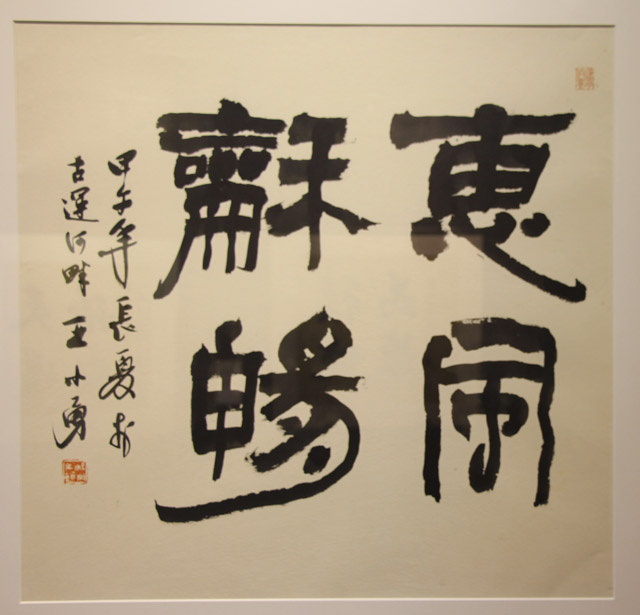 惠风
龢畅
甲午年長夏於
古運河畔王小勇